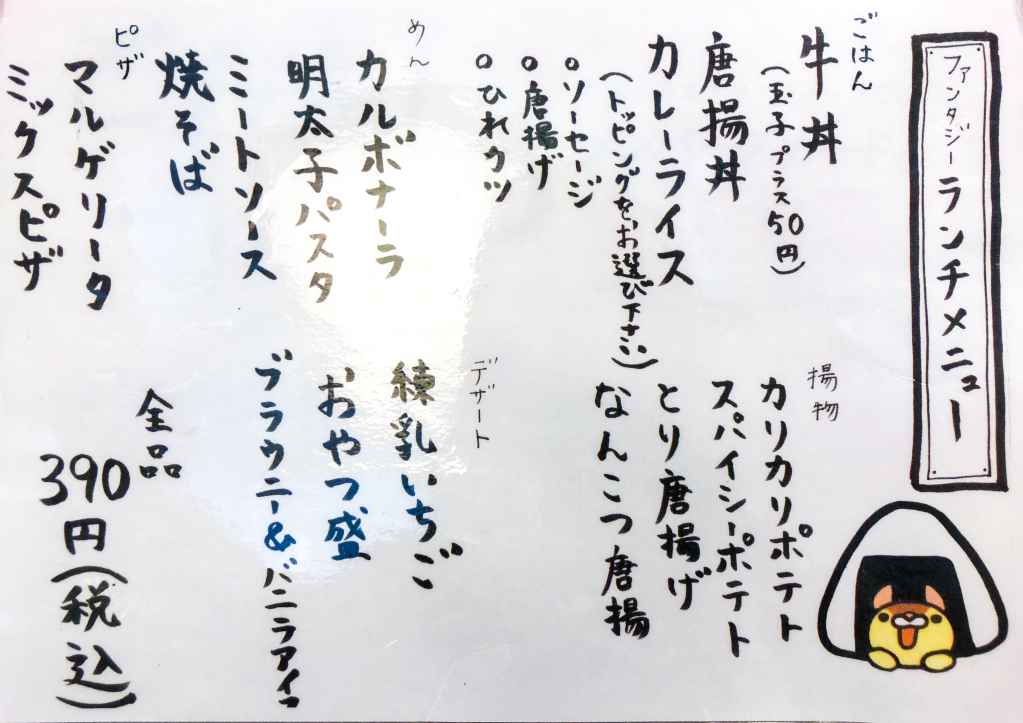 ファンタジーランチメニュー
ごはん
牛丼
(玉子プラス50円)
唐揚丼
カレーライス
(トッピングをお選び下さい)
○ソーセージ
○唐揚げ
○ひれカツ
めん
カルボナーラ
明太子パスタ
ミートソース
焼そば
ピザ
マルゲリータ
ミックスピザ
揚物
カリカリポテト
スパイシーポテト
とり唐揚げ
なんこつ唐揚
デザート
練乳いちご
おやつ盛
ブラウニー&バニラアイス
全品
390円(税込)